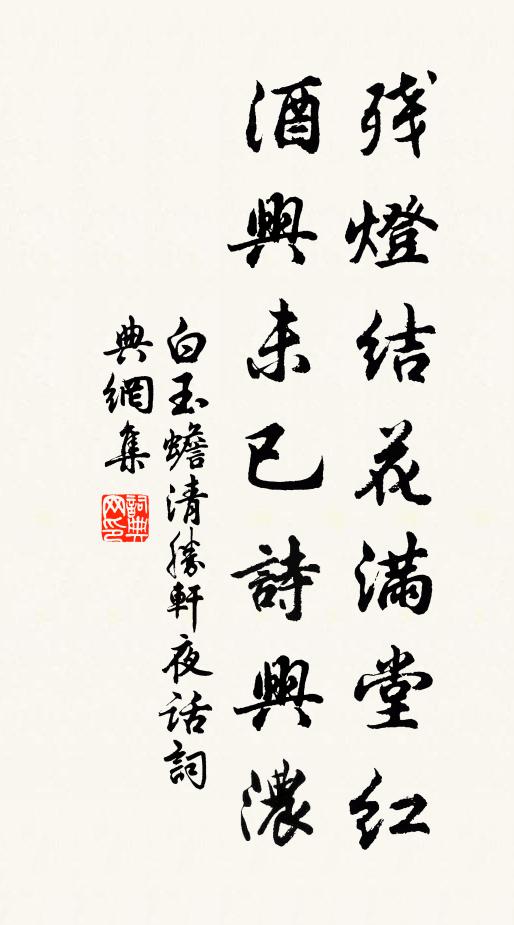 残燈結花满堂红
酒興未已詩興濃
白玉蟾清勝軒夜话詞
典網集
詞典
网印